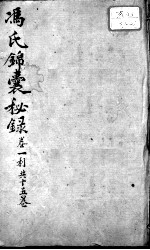 馮氏錦囊秘録
卷一利共十五卷